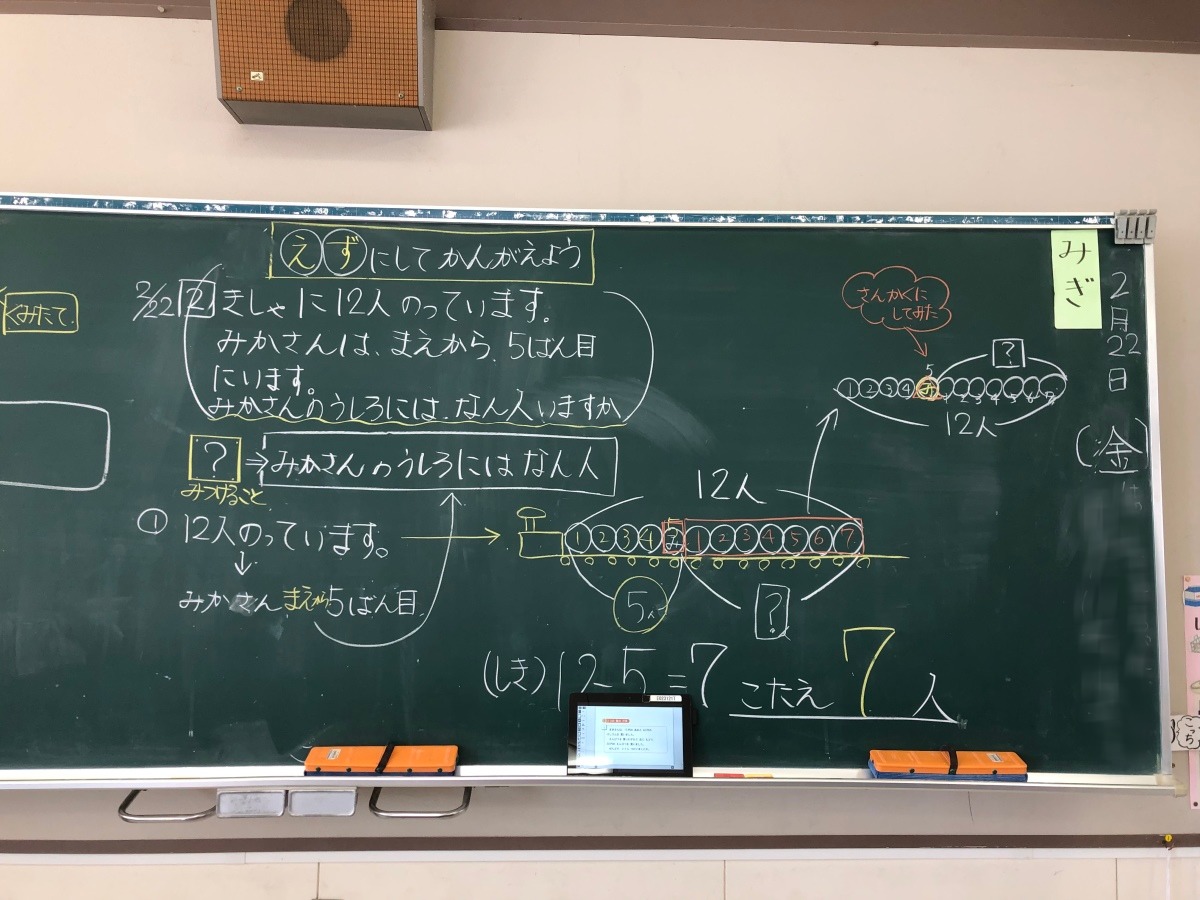 えずにしてかんがえよう
くみたて
2/22 2 きしゃに12人のっています。
みかさんは、まえから、5ばん目
にいます。
みかさんのうしろには、なん人いますか
? ⇒ みかさんのうしろにはなん人
みつけること
① 12人のっています。
↓
みかさんまえから5ばん目
12人
①②③④み①②③④⑤⑥⑦
5人
?
(しき)12-5=7 こたえ 7人
さんかくに
してみた
5
?
①②③④み①②③④⑤⑥⑦
12人
みぎ
2月22日
(金)